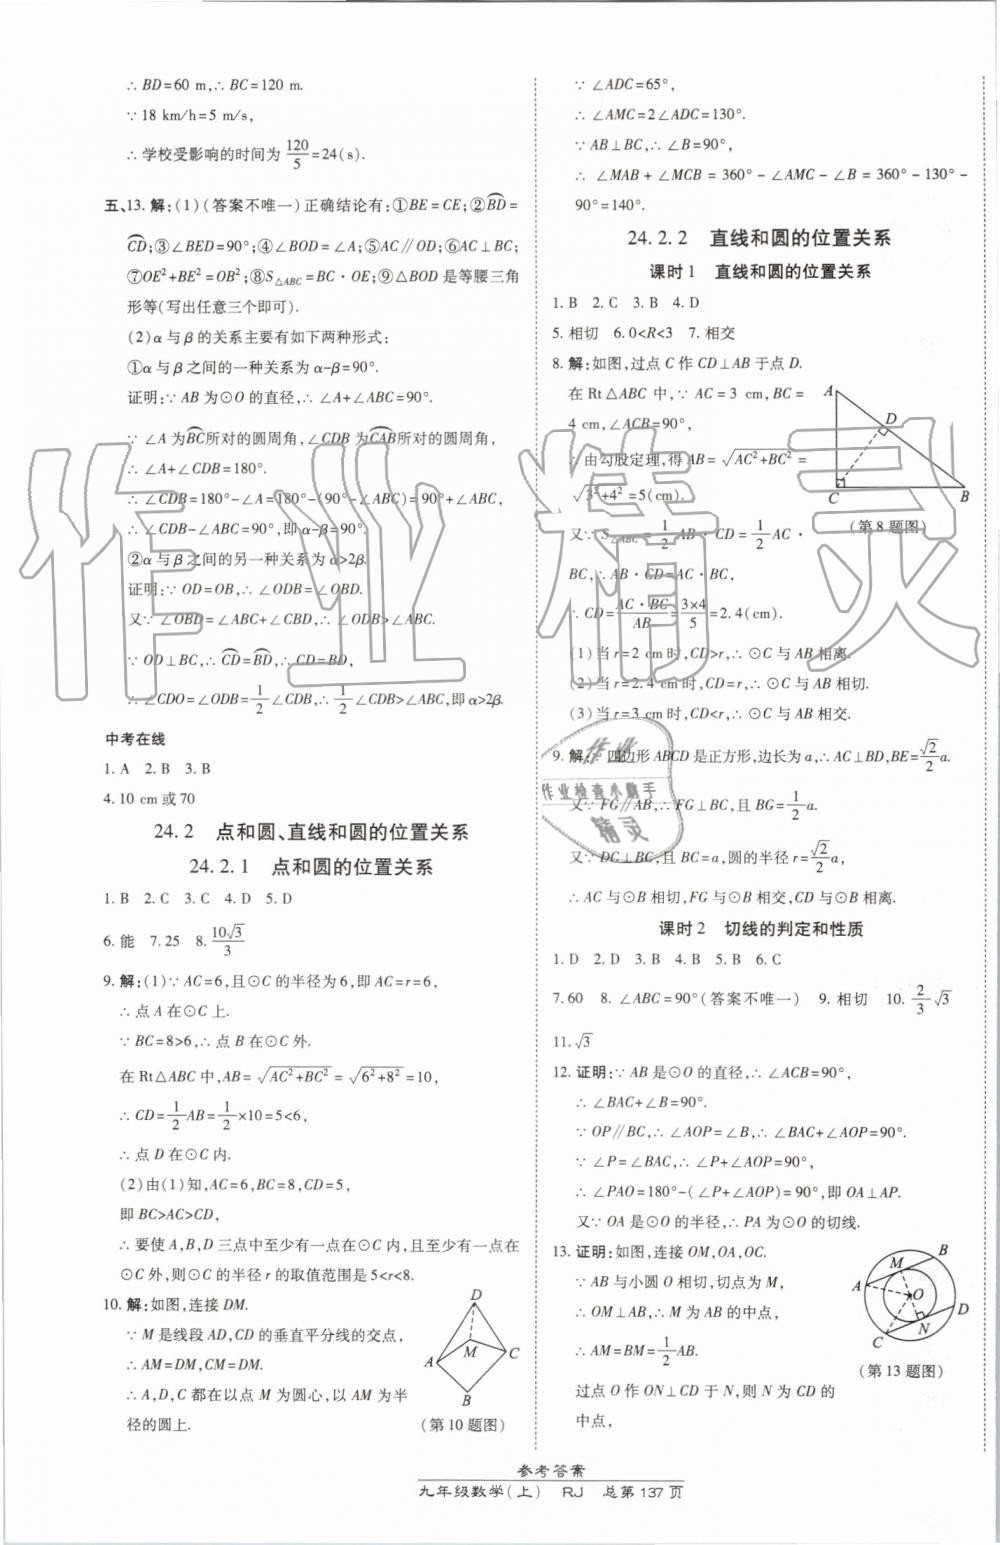 ∴ BD=60 m,∴ BC=120 m.
∵ 18 km/h=5 m/s,
∴ 学校受影响的时间为 120/5=24(s).
五、13. 解:(1)(答案不唯一)正确结论有:①BE=CE;②BD⌒=
CD⌒;③∠BED=90°;④∠BOD=∠A;⑤AC∥OD;⑥AC⊥BC;
⑦OE²+BE²=OB²;⑧S△ABC=BC·OE;⑨△BOD 是等腰三角
形等(写出任意三个即可).
(2)α 与 β 的关系主要有如下两种形式:
①α 与 β 之间的一种关系为 α-β=90°.
证明:∵ AB 为⊙O 的直径,∴ ∠A+∠ABC=90°.
∵ ∠A 为BC⌒所对的圆周角,∠CDB 为CAB⌒所对的圆周角,
∴ ∠A+∠CDB=180°.
∴ ∠CDB=180°-∠A=180°-(90°-∠ABC)=90°+∠ABC,
∴ ∠CDB-∠ABC=90°,即 α-β=90°.
②α 与 β 之间的另一种关系为 α>2β.
证明:∵ OD=OB,∴ ∠ODB=∠OBD.
又∵ ∠OBD=∠ABC+∠CBD,∴ ∠ODB>∠ABC.
∵ OD⊥BC,∴ CD⌒=BD⌒,∴ CD=BD,
∴ ∠CDO=∠ODB=1/2∠CDB,∴ 1/2∠CDB>∠ABC,即 α>2β.
中考在线
1. A 2. B 3. B
4. 10 cm 或 70
24.2 点和圆、直线和圆的位置关系
24.2.1 点和圆的位置关系
1. B 2. C 3. C 4. D 5. D
6. 能 7. 25 8. 10√3/3
9. 解:(1)∵ AC=6,且⊙C 的半径为 6,即 AC=r=6,
∴ 点 A 在⊙C 上.
∵ BC=8>6,∴ 点 B 在⊙C 外.
在 Rt△ABC 中,AB=√(AC²+BC²)=√(6²+8²)=10,
∴ CD=1/2AB=1/2×10=5<6,
∴ 点 D 在⊙C 内.
(2)由(1)知,AC=6,BC=8,CD=5,
即 BC>AC>CD,
∴ 要使 A,B,D 三点中至少有一点在⊙C 内,且至少有一点在
⊙C 外,则⊙C 的半径 r 的取值范围是 5<r<8.
10. 解:如图,连接 DM.
∵ M 是线段 AD,CD 的垂直平分线的交点,
∴ AM=DM,CM=DM.
∴ A,D,C 都在以点 M 为圆心,以 AM 为半
径的圆上.
D
M
A
C
B
(第 10 题图)
∵ ∠ADC=65°,
∴ ∠AMC=2∠ADC=130°.
∵ AB⊥BC,∴ ∠B=90°,
∴ ∠MAB+∠MCB=360°-∠AMC-∠B=360°-130°-
90°=140°.
24.2.2 直线和圆的位置关系
课时 1 直线和圆的位置关系
1. B 2. C 3. B 4. D
5. 相切 6. 0<R<3 7. 相交
8. 解:如图,过点 C 作 CD⊥AB 于点 D.
在 Rt△ABC 中,∵ AC=3 cm,BC=
4 cm,∠ACB=90°,
∴ 由勾股定理,得 AB=√(AC²+BC²)=
√(3²+4²)=5(cm).
又∵ S△ABC=1/2AB·CD=1/2AC·
BC,∴ AB·CD=AC·BC,
∴ CD=AC·BC/AB=3×4/5=2.4(cm).
A
D
C
B
(第 8 题图)
(1)当 r=2 cm 时,CD>r,∴ ⊙C 与 AB 相离.
(2)当 r=2.4 cm 时,CD=r,∴ ⊙C 与 AB 相切.
(3)当 r=3 cm 时,CD<r,∴ ⊙C 与 AB 相交.
9. 解:∵ 四边形 ABCD 是正方形,边长为 a,∴ AC⊥BD,BE=√2/2a.
又∵ FG∥AB,∴ FG⊥BC,且 BG=1/2a.
又∵ DC⊥BC,且 BC=a,圆的半径 r=√2/2a,
∴ AC 与⊙B 相切,FG 与⊙B 相交,CD 与⊙B 相离.
课时 2 切线的判定和性质
1. D 2. D 3. B 4. B 5. B 6. C
7. 60 8. ∠ABC=90°(答案不唯一) 9. 相切 10. 2/3√3
11. √3
12. 证明:∵ AB 是⊙O 的直径,∴ ∠ACB=90°,
∴ ∠BAC+∠B=90°.
∵ OP∥BC,∴ ∠AOP=∠B,∴ ∠BAC+∠AOP=90°.
∵ ∠P=∠BAC,∴ ∠P+∠AOP=90°,
∴ ∠PAO=180°-(∠P+∠AOP)=90°,即 OA⊥AP.
又∵ OA 是⊙O 的半径,∴ PA 为⊙O 的切线.
13. 证明:如图,连接 OM,OA,OC.
∵ AB 与小圆 O 相切,切点为 M,
∴ OM⊥AB,∴ M 为 AB 的中点,
∴ AM=BM=1/2AB.
过点 O 作 ON⊥CD 于 N,则 N 为 CD 的
中点,
B
M
A
O
D
N
C
(第 13 题图)
参考答案
九年级数学(上) RJ 总第 137 页
作业精灵
作业
作业检查小助手
精灵